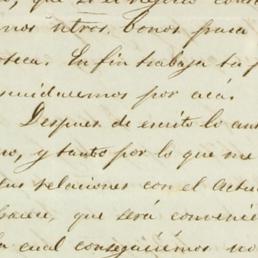 que si el negocio cons
mos ntros. bonos para
oteca. En fin trabaja tu p
nsuiducemos por acá.
Despues de escrito lo ant
no, y tanto por lo que me
las relaciones con el Actua
hacer, que será convenie
la cual conseguiremos no